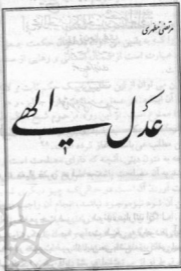 مرتضی مطهری
عدل الهی